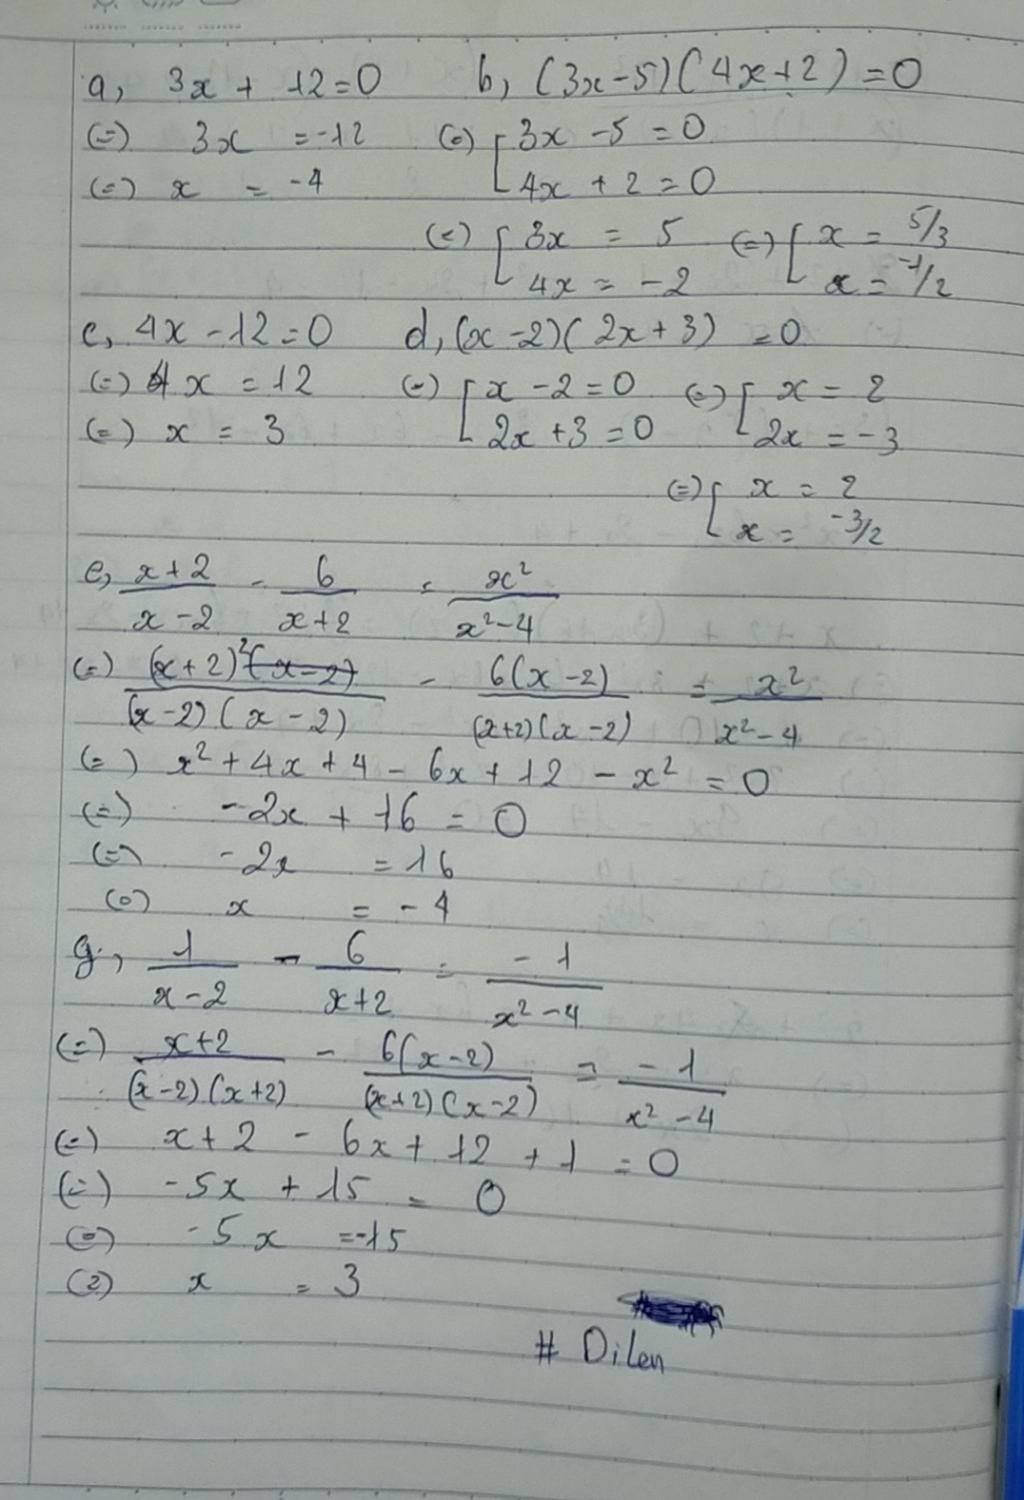 a, 3x + 12 = 0
(=) 3x = -12
(=) x = -4
b, (3x-5)(4x+2) = 0
(=) [ 3x - 5 = 0
4x + 2 = 0
(=) [ 3x = 5
4x = -2
(=) [ x = 5/3
x = -1/2
c, 4x - 12 = 0
(=) 4x = 12
(=) x = 3
d, (x-2)(2x+3) = 0
(=) [ x - 2 = 0
2x + 3 = 0
(=) [ x = 2
2x = -3
(=) [ x = 2
x = -3/2
e, (x+2)/(x-2) - 6/(x+2) = x²/(x²-4)
(=) (x+2)²(x-2)/(x-2)(x-2) - 6(x-2)/(x+2)(x-2) = x²/(x²-4)
(=) x² + 4x + 4 - 6x + 12 - x² = 0
(=) -2x + 16 = 0
(=) -2x = 16
(=) x = -4
g, 1/(x-2) - 6/(x+2) = -1/(x²-4)
(=) (x+2)/(x-2)(x+2) - 6(x-2)/(x+2)(x-2) = -1/(x²-4)
(=) x+2 - 6x + 12 + 1 = 0
(=) -5x + 15 = 0
(=) -5x = -15
(=) x = 3
# Dilen